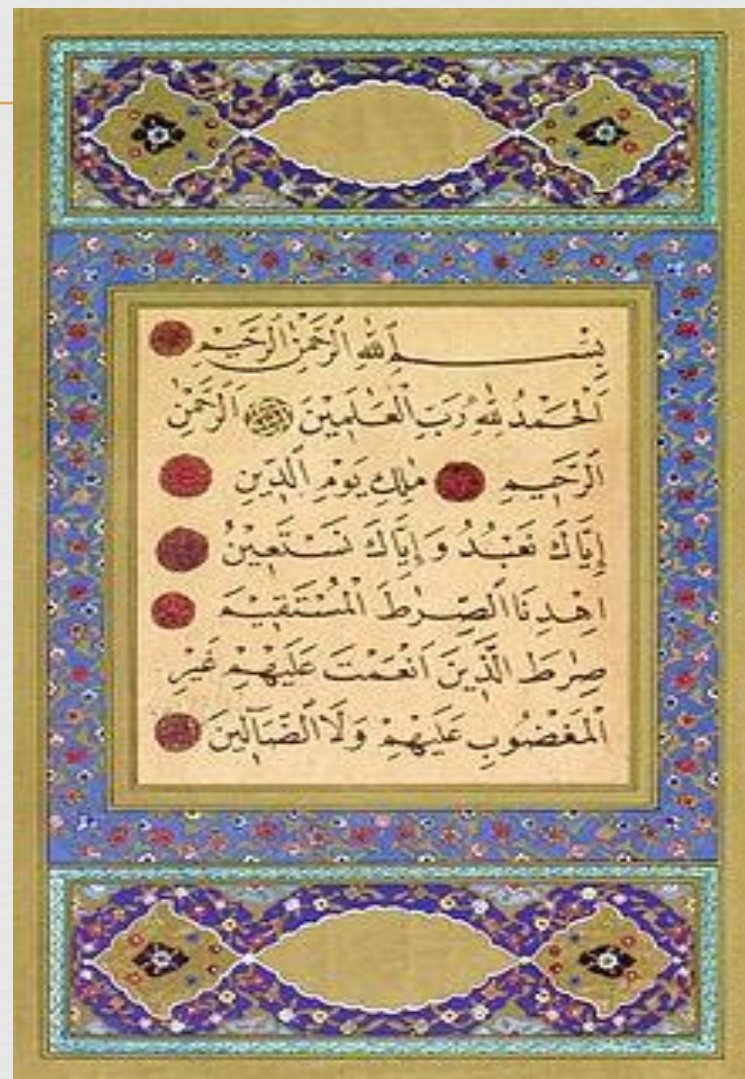 بِسْمِ اللهِ الرَّحْمٰنِ الرَّحِيْمِ
اَلْحَمْدُ لِلّٰهِ رَبِّ الْعَالَمِيْنَ اَلرَّحْمٰنِ
الرَّحِيْمِ مٰلِكِ يَوْمِ الدِّيْنِ
اِيَّاكَ نَعْبُدُ وَاِيَّاكَ نَسْتَعِيْنُ
اِهْدِنَا الصِّرٰطَ الْمُسْتَقِيْمَ
صِرٰطَ الَّذِيْنَ اَنْعَمْتَ عَلَيْهِمْ غَيْرِ
الْمَغْضُوْبِ عَلَيْهِمْ وَلَا الضَّآلِّيْنَ